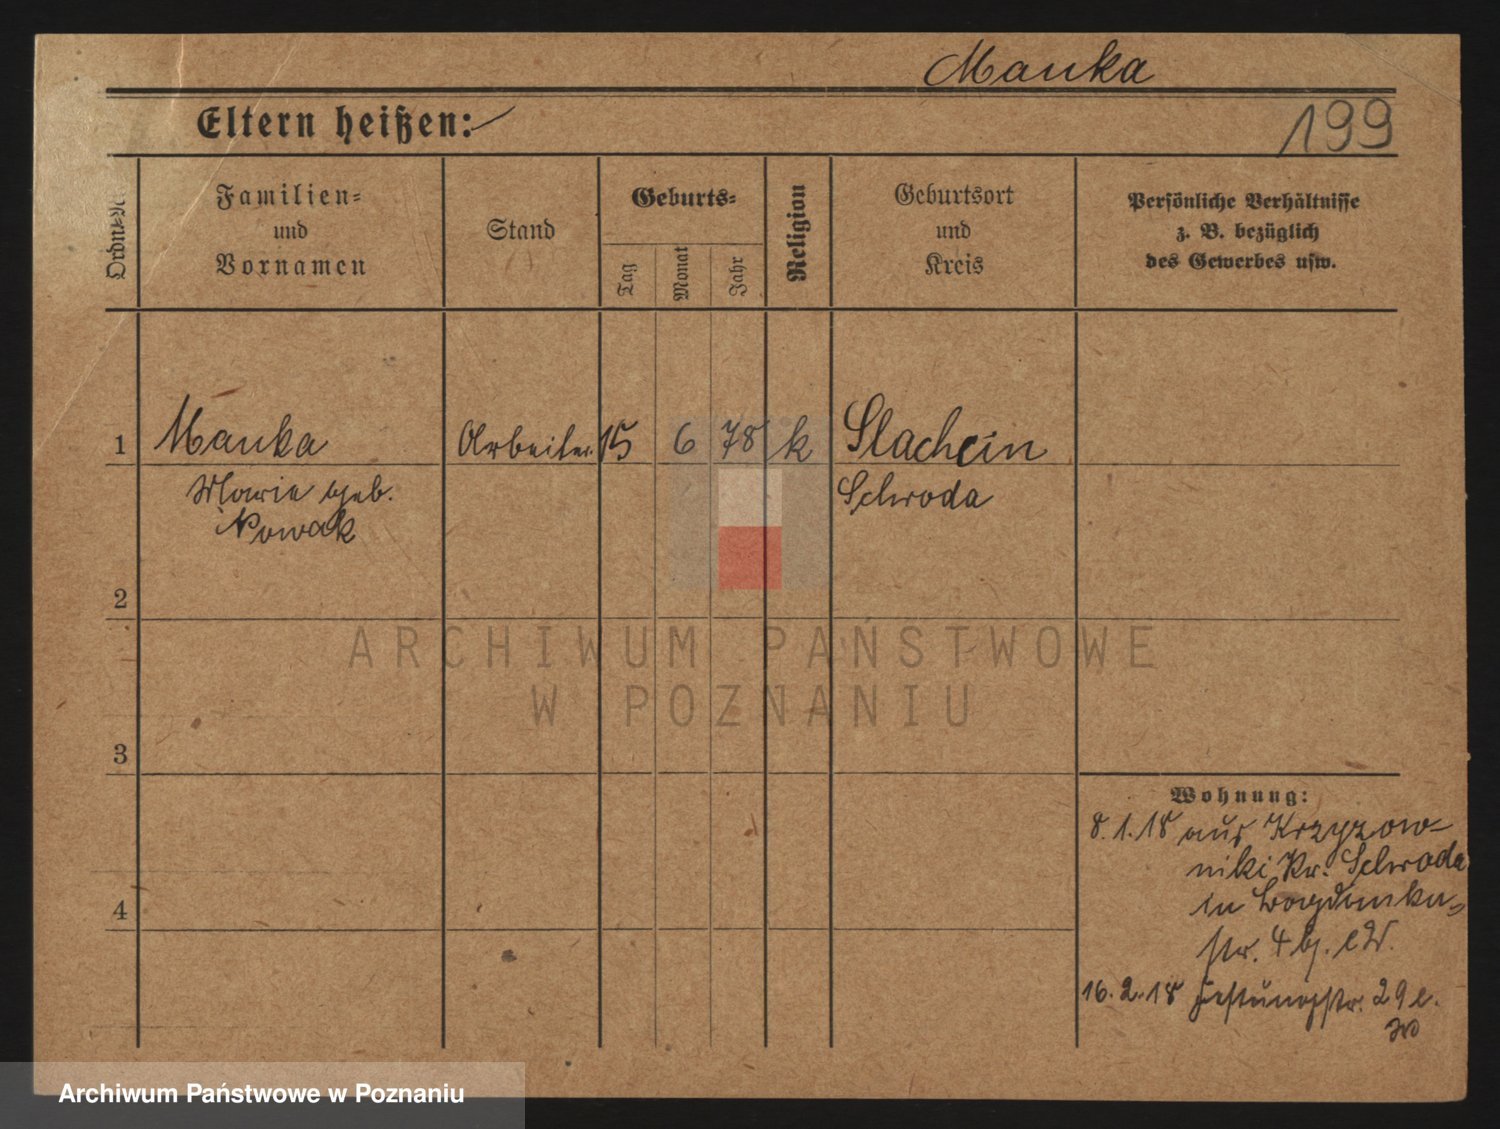 Manka
Eltern heißen:
199
Ordn.-N.
Familien-
und
Vornamen
Stand
Geburts-
Tag
Monat
Jahr
Religion
Geburtsort
und
Kreis
Persönliche Verhältnisse
z. B. bezüglich
des Gewerbes usw.
1 Manka Arbeiter 15 6 78 k Slachcin
Marie geb. Schroda
Nowak
2
ARCHIWUM PAŃSTWOWE
W POZNANIU
3
Wohnung:
8.1.18 aus Krzyzow-
niki Kr. Schroda
4
in Bogdanka-
str. 4 bj.
16.2.18 Festungsstr. 29
Archiwum Państwowe w Poznaniu